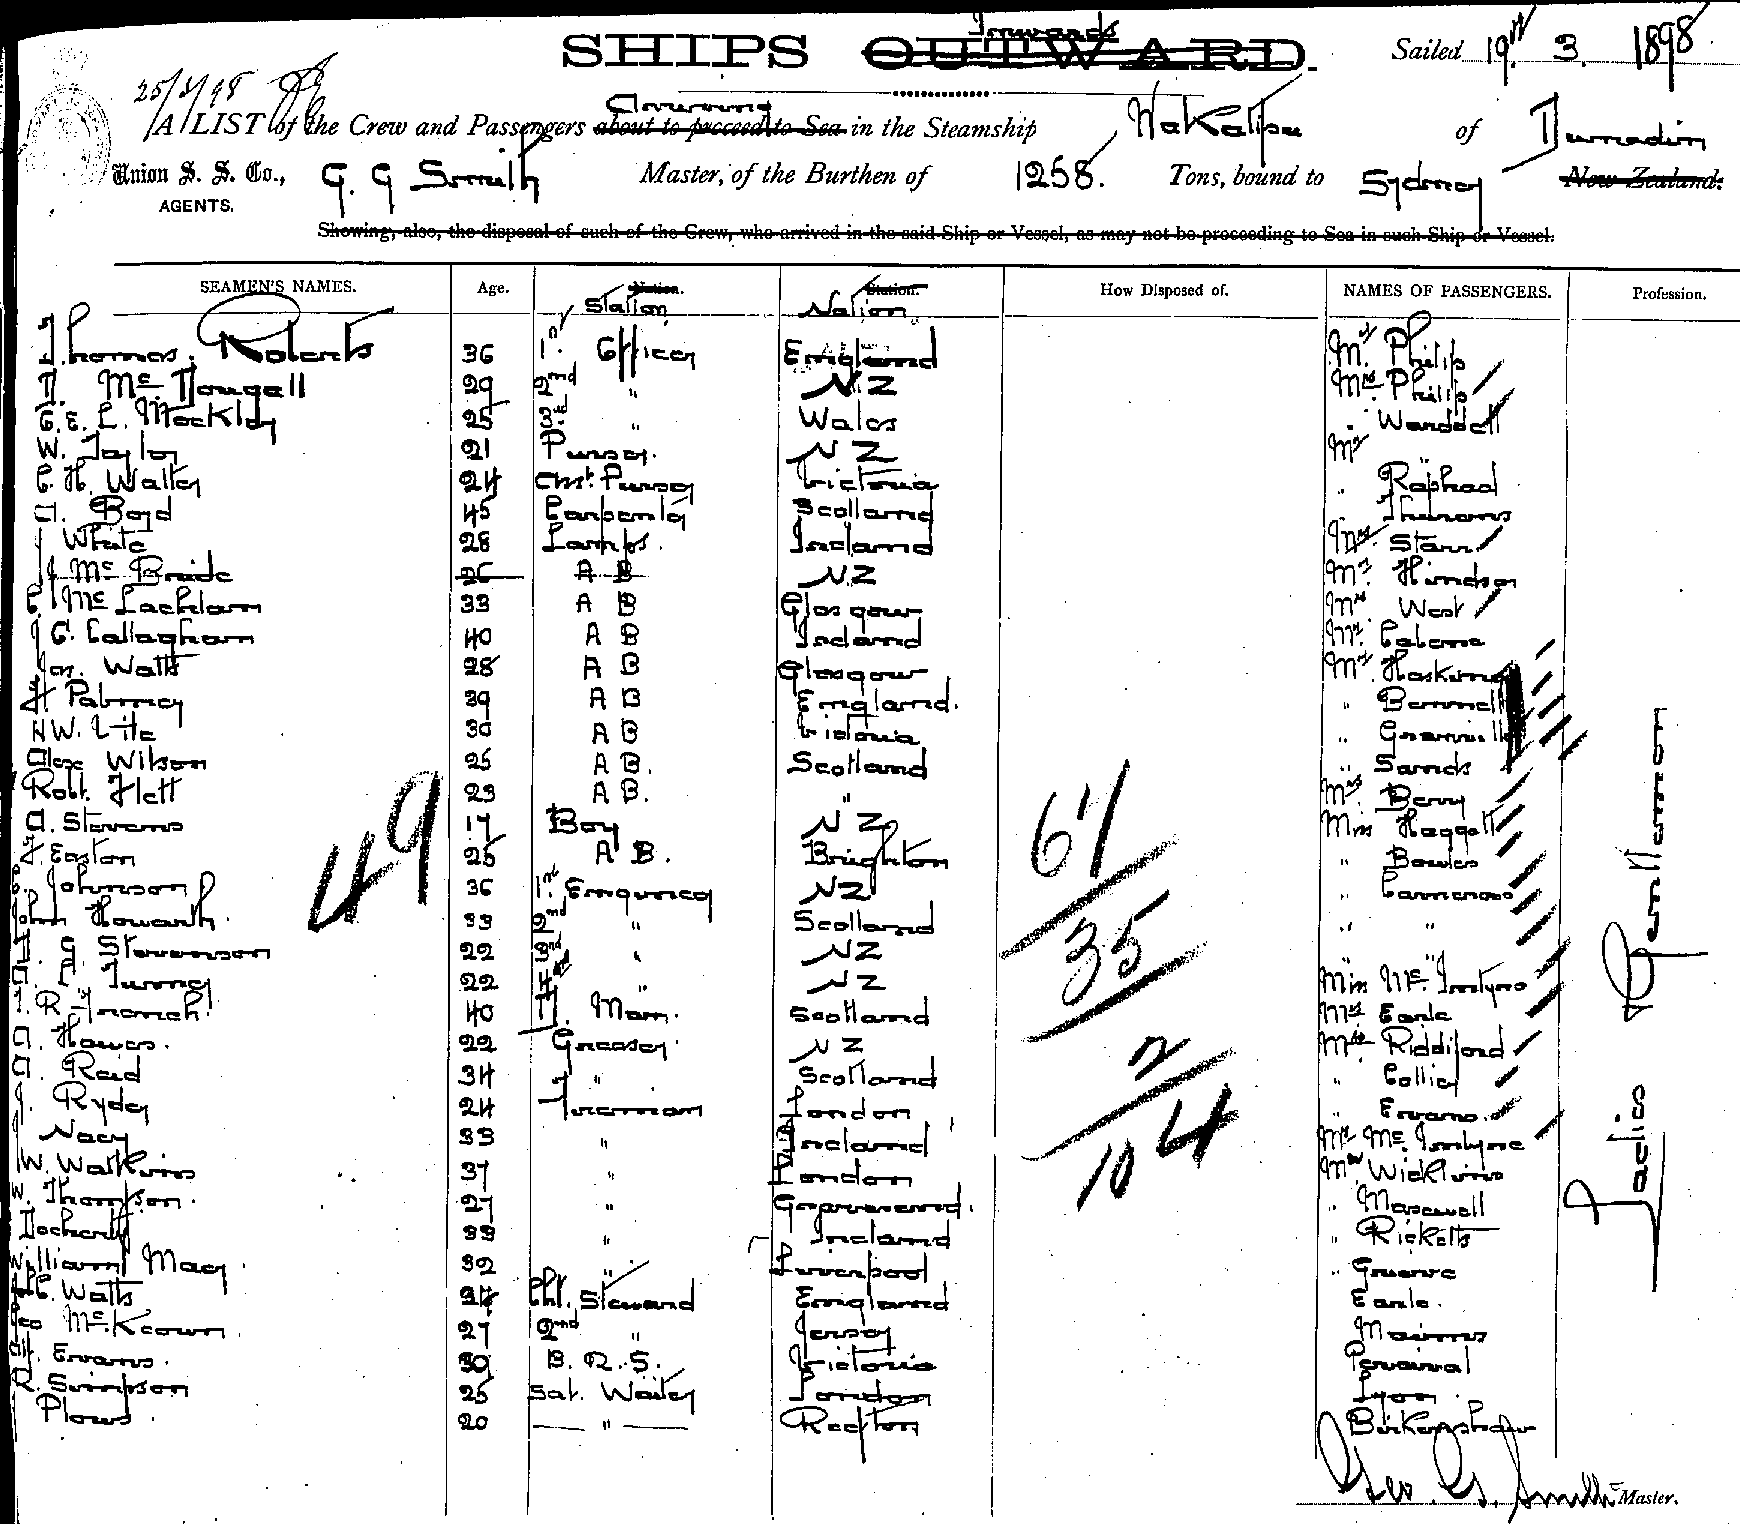 Inwards
SHIPS OUTWARD.
Sailed 19th 3. 1898
25/3/98
Arriving
A LIST of the Crew and Passengers about to proceed to Sea in the Steamship Wakatipu of Dunedin
Union S. S. Co., G. G Smith Master, of the Burthen of 1258. Tons, bound to Sydney New Zealand:
AGENTS.
Showing, also, the disposal of such of the Crew, who arrived in the said Ship or Vessel, as may not be proceeding to Sea in such Ship or Vessel.
SEAMEN'S NAMES. Age. Nation. Station. How Disposed of. NAMES OF PASSENGERS. Profession.
Station Nation
Thomas Roberts 36 1st Officer England Mr Philip
D. Mc Dougall 29 2nd " N Z Mrs Philip
25 3rd " Wales
W. Taylor 21 Purser. N Z Mr "
C. H. Walter 24 Purser Victoria " Raphael
A. Boyd 45 Carpenter Scotland
J White 28 Lamps. Ireland Mrs. Starr
J Mc Bride 26 A B N.Z Mr
C. Mc Lachlan 33 A B Glasgow Mrs West
J O. Callaghan 40 A B Ireland Mr.
Jas. Watt 28 A B Glasgow Mr Haskins
H Palmer 39 A B England. " Bennell
H W. 30 A B Victoria "
Alex Wilson 25 A B. Scotland " Sands
Robt. Flett 23 A B. " Mrs. Berry
A. Stevens 17 Boy N Z Miss Haggett
49
F. Easton 25 A B. Brighton " Bowles
67
C. Johnson 36 1st Engineer N Z " Cameron
John Howarth. 33 2nd " Scotland " "
35
J. G Stevenson 22 3rd " N Z
A. C Turner 22 4th " N Z Miss Mc. Intyre
J. R French. 40 D. Man. Scotland Mrs Earle
A. Howes. 22 Greaser. N Z Mrs Riddiford
2
A. Reid 34 " Scotland " Collier
J. Ryder 24 Fireman London " Evans.
J Nacy 33 " Ireland Mr Mc. Intyre
104
W. Watkins 37 " London Mr
W. Thompson. 27 " Gravesend. " Maxwell
Docherty 33 " Ireland " Ricketts
William Macy 32 " Liverpool " Grieve
C. Watts 34 Cht. Steward England Earle.
Geo Mc.Keown. 27 2nd " Jersey
Evans. 30 B. R. S. Victoria Percival
R. Simpson 25 Sal. Waiter London Lyon.
Plows. 20 " Repton Birkenshaw
Ladies & Gentlemen
Geo. G. Smith Master.